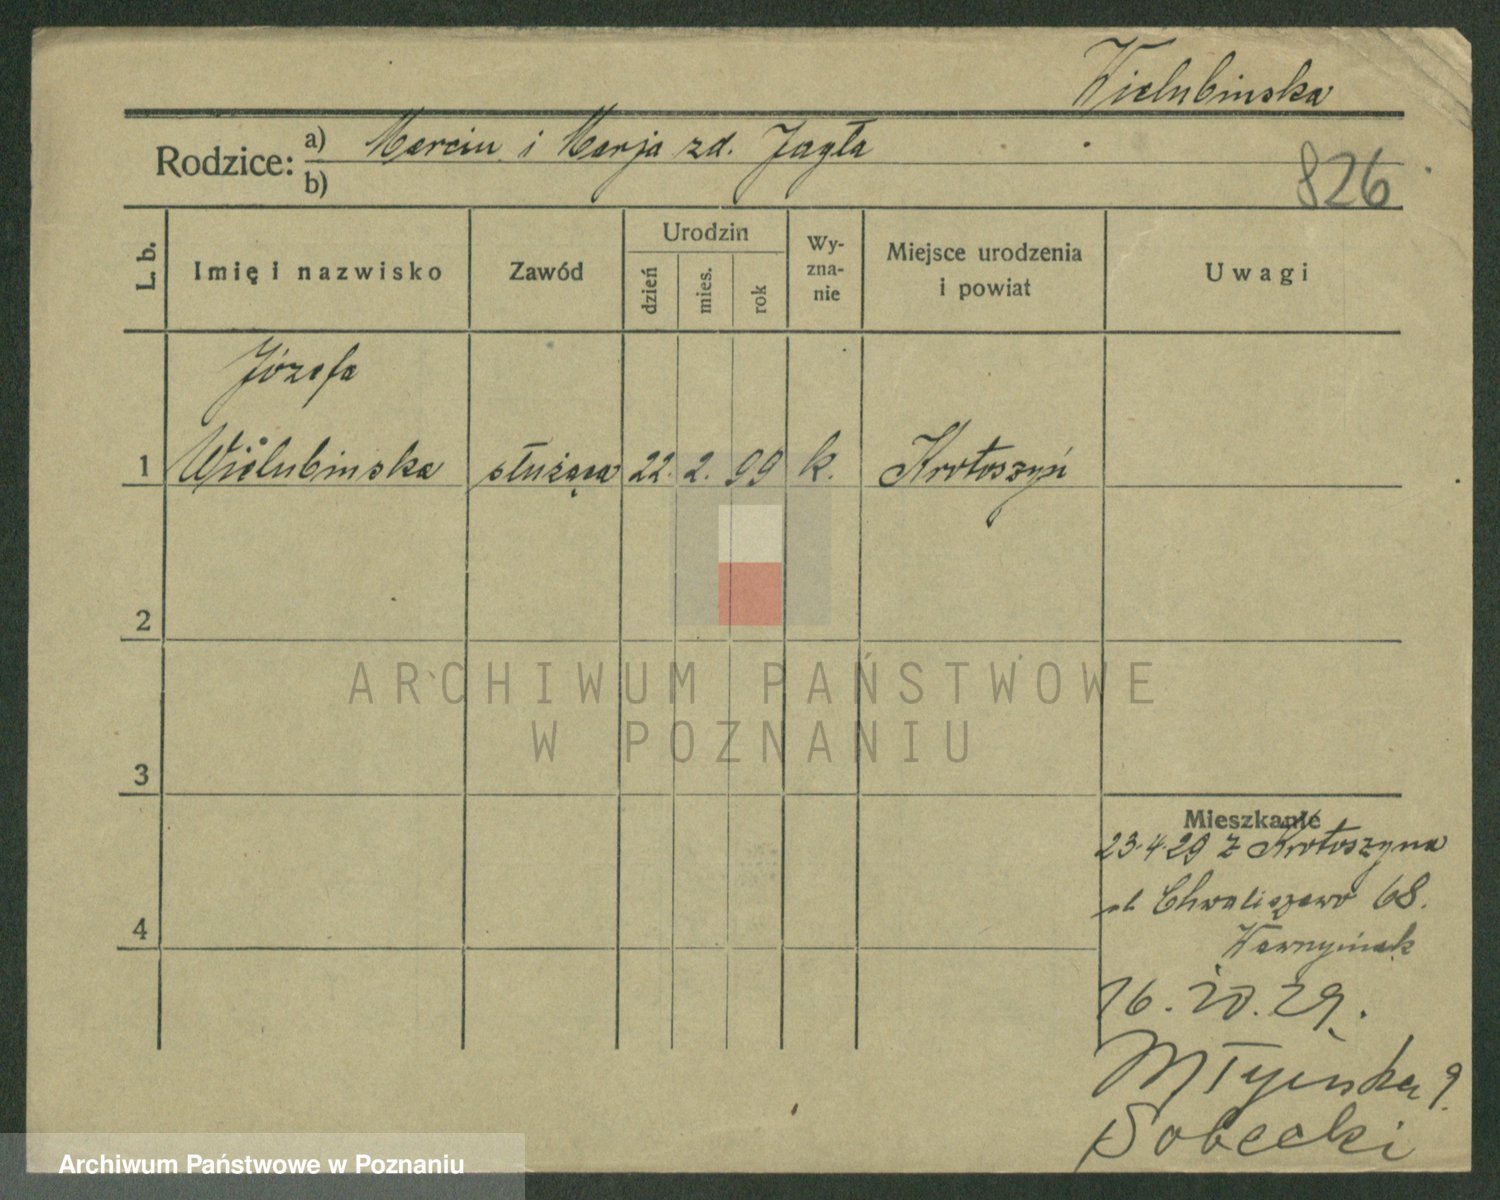 Wielubinska
Rodzice: a) Marcin i Marja zd. Jagła
b)
826
L. b. Imię i nazwisko Zawód Urodzin dzień mies. rok Wy-zna-nie Miejsce urodzenia i powiat Uwagi
Józefa
1 Wielubinska służąca 22. 2. 99 k. Krotoszyń
2
ARCHIWUM PAŃSTWOWE
W POZNANIU
3
Mieszkanie
23.4.29 z Krotoszyna
ul Chwaliszewo 68.
4
16. 10. 29.
Młyńska 9.
Sobecki
Archiwum Państwowe w Poznaniu